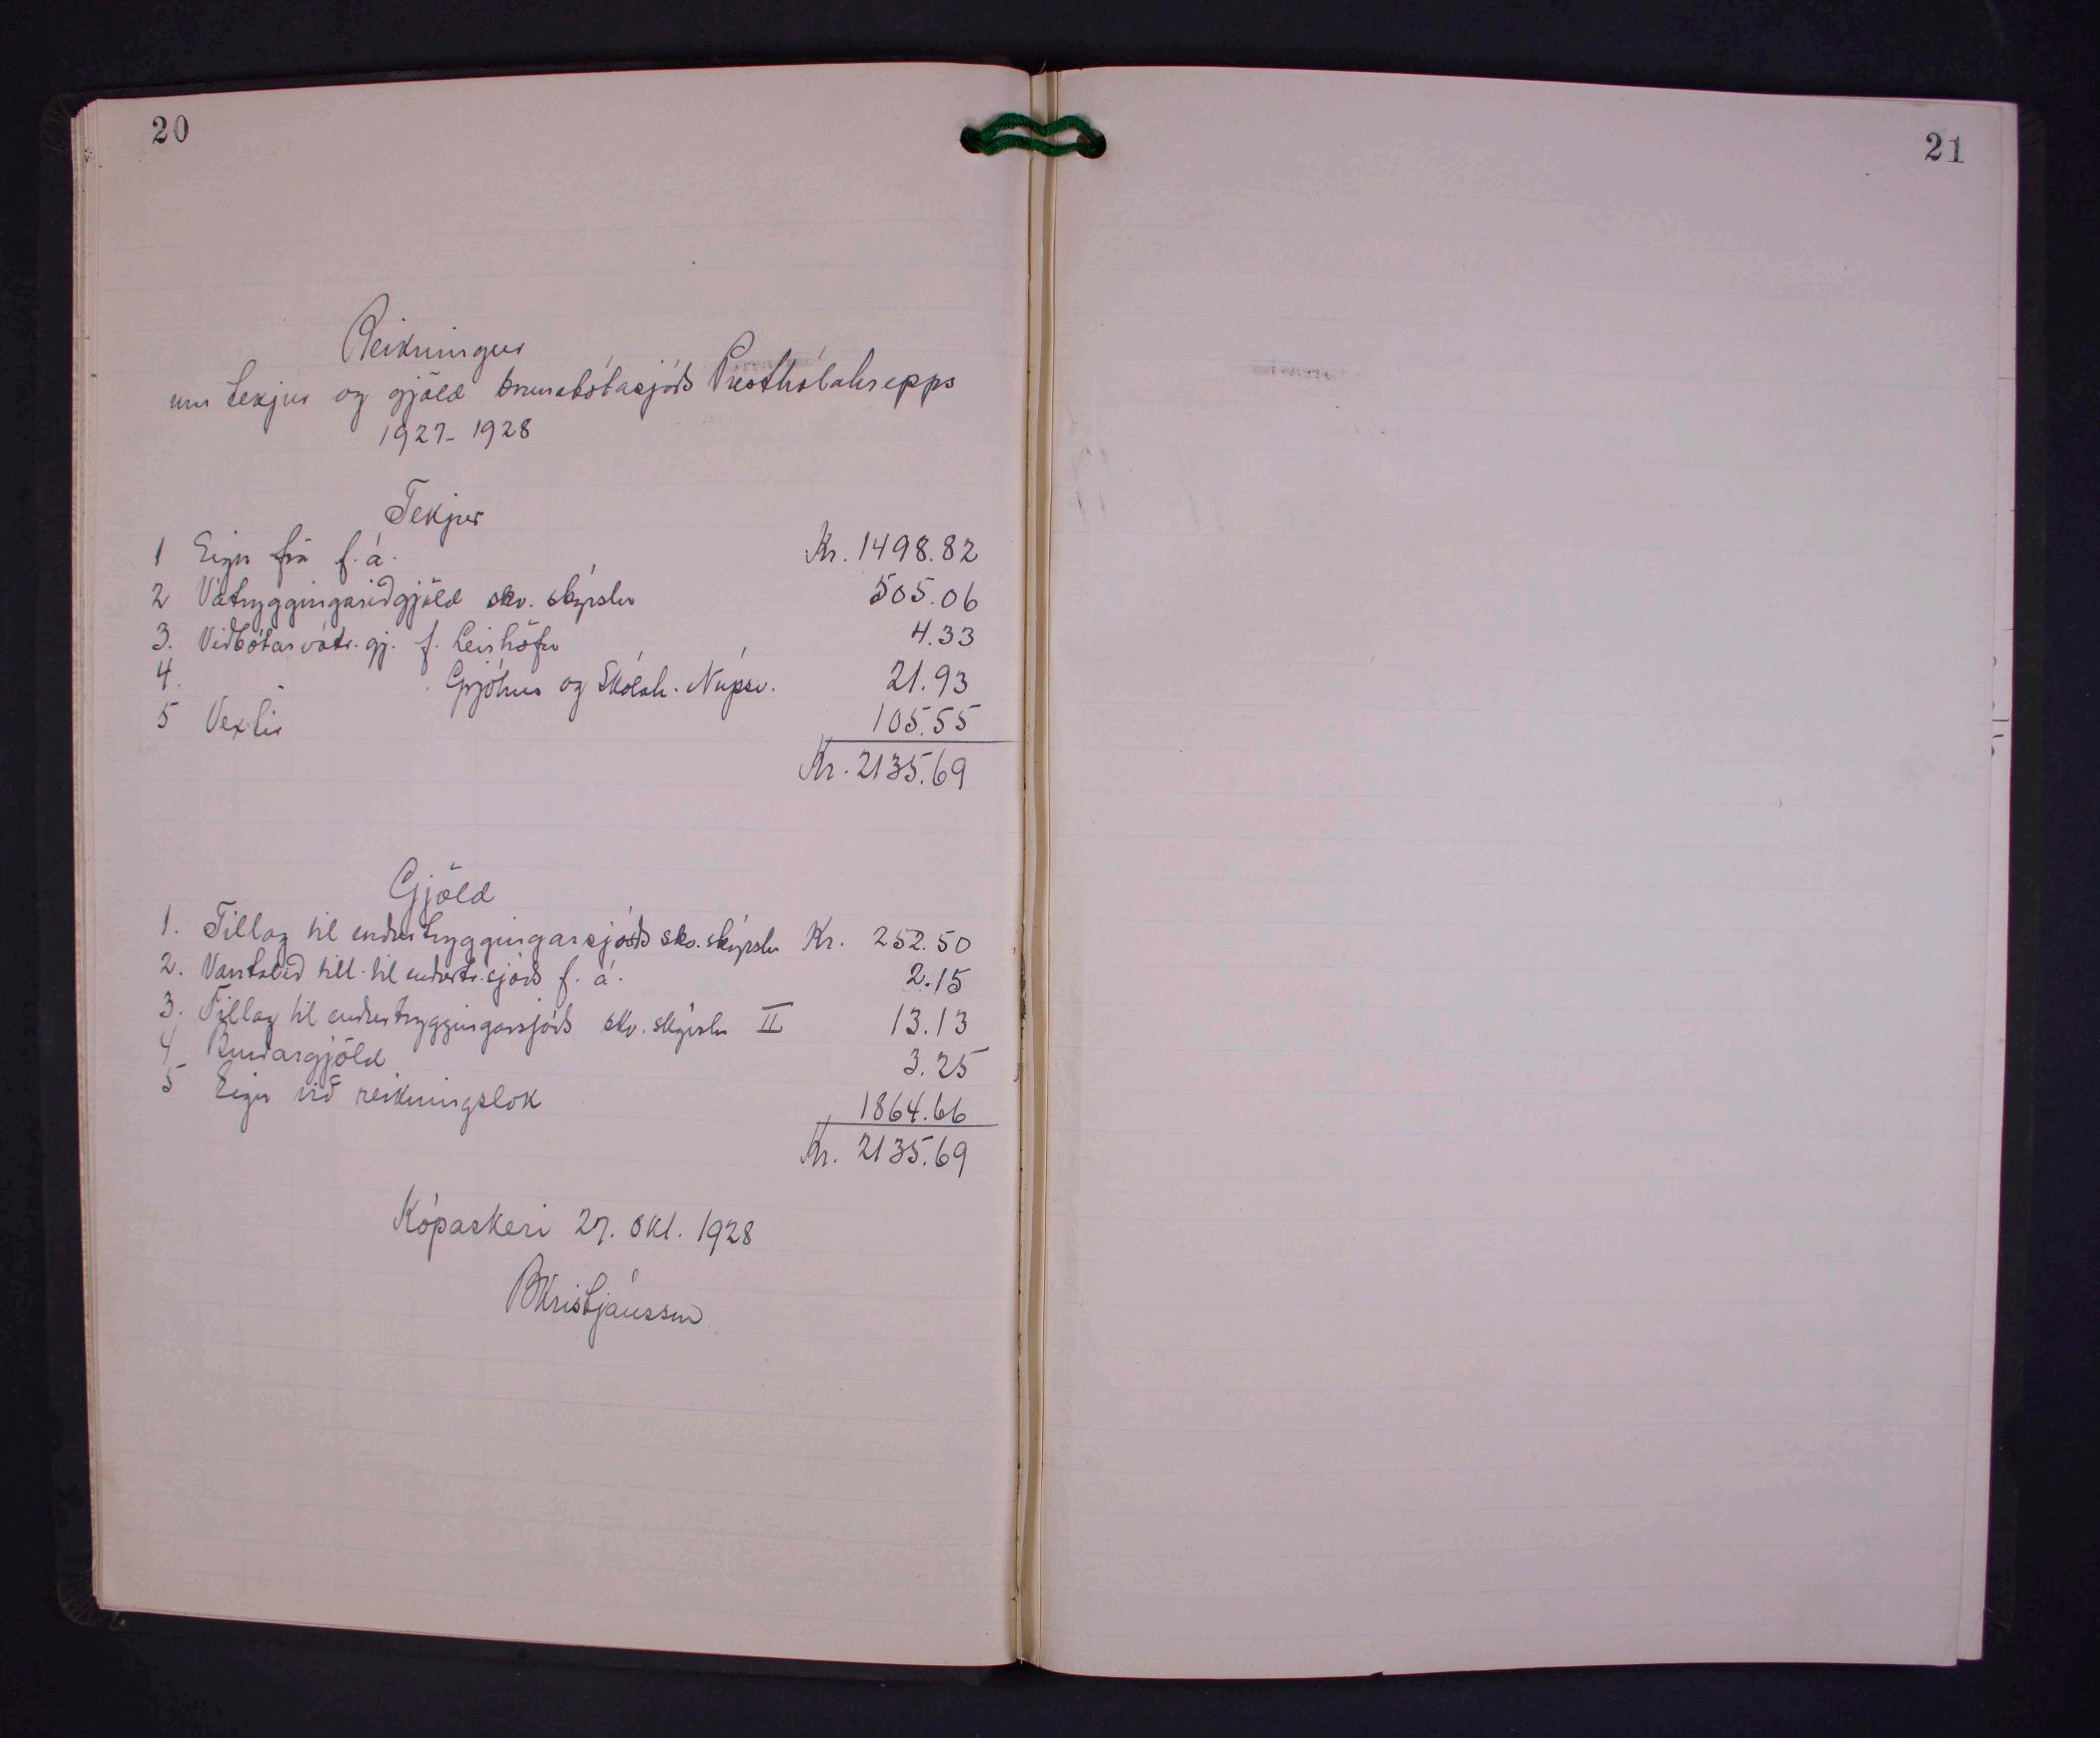 20
21
Reikningur
um tekjur og gjöld brunabótasjóðs Presthólahrepps
1927-1928
Tekjur
1 Eign frá f. á. Kr. 1498.82
2 Vátryggingariðgjöld skv. skýrslu 505.06
3. Viðbótarvátr.gj. f. Leirhöfn 4.33
4. " Grjótnes og Skólah. Núpsv. 21.93
5 Vextir 105.55
Kr. 2135.69
Gjöld
1. Tillag til endurtryggingarsjóðs skv. skýrslu Kr. 252.50
2. Vantalið till. til endurtr.sjóðs f. á. 2.15
3. Tillag til endurtryggingarsjóðs skv. skýrslu II 13.13
4 Burðargjöld 3.25
5 Eign við reikningslok 1864.66
Kr. 2135.69
Kópaskeri 27. okt. 1928
BKristjánsson